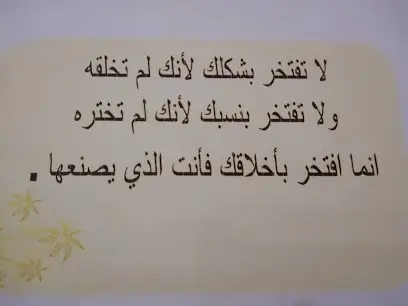 لا تفتخر بشكلك لأنك لم تخلقه
ولا تفتخر بنسبك لأنك لم تختره
انما افتخر بأخلاقك فأنت الذي يصنعها .